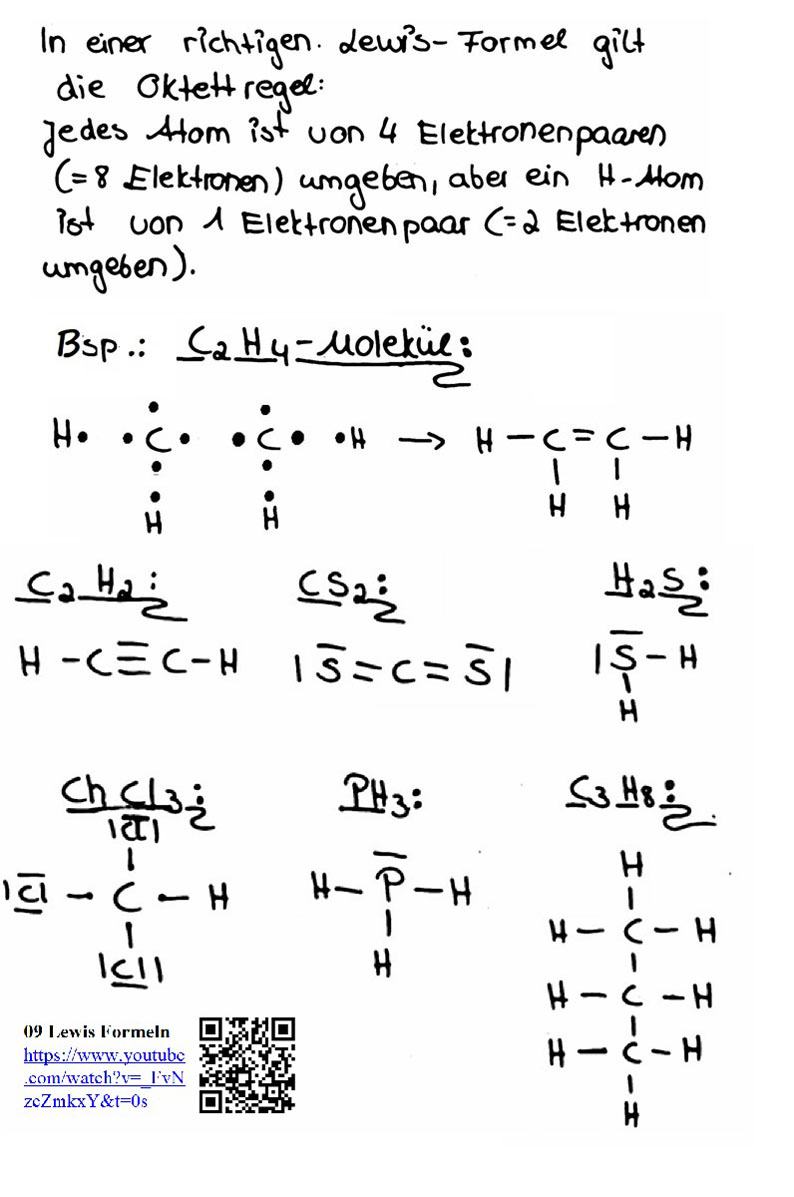 In einer richtigen. Lewis-Formel gilt
die Oktettregel:
Jedes Atom ist von 4 Elektronenpaaren
(=8 Elektronen) umgeben, aber ein H-Atom
ist von 1 Elektronenpaar (=2 Elektronen
umgeben).
Bsp.: C2H4-Molekül:
H• •C• •C• •H → H – C = C – H
H H H H
C2H2: CS2: H2S:
H - C ≡ C - H |S = C = S| |S - H
H
ChCl3: PH3: C3H8:
|Cl| H
|Cl – C – H H – P – H H – C – H
|Cl| H H – C – H
H – C – H
H
09 Lewis Formeln
https://www.youtube
.com/watch?v=_FvN
zcZmkxY&t=0s